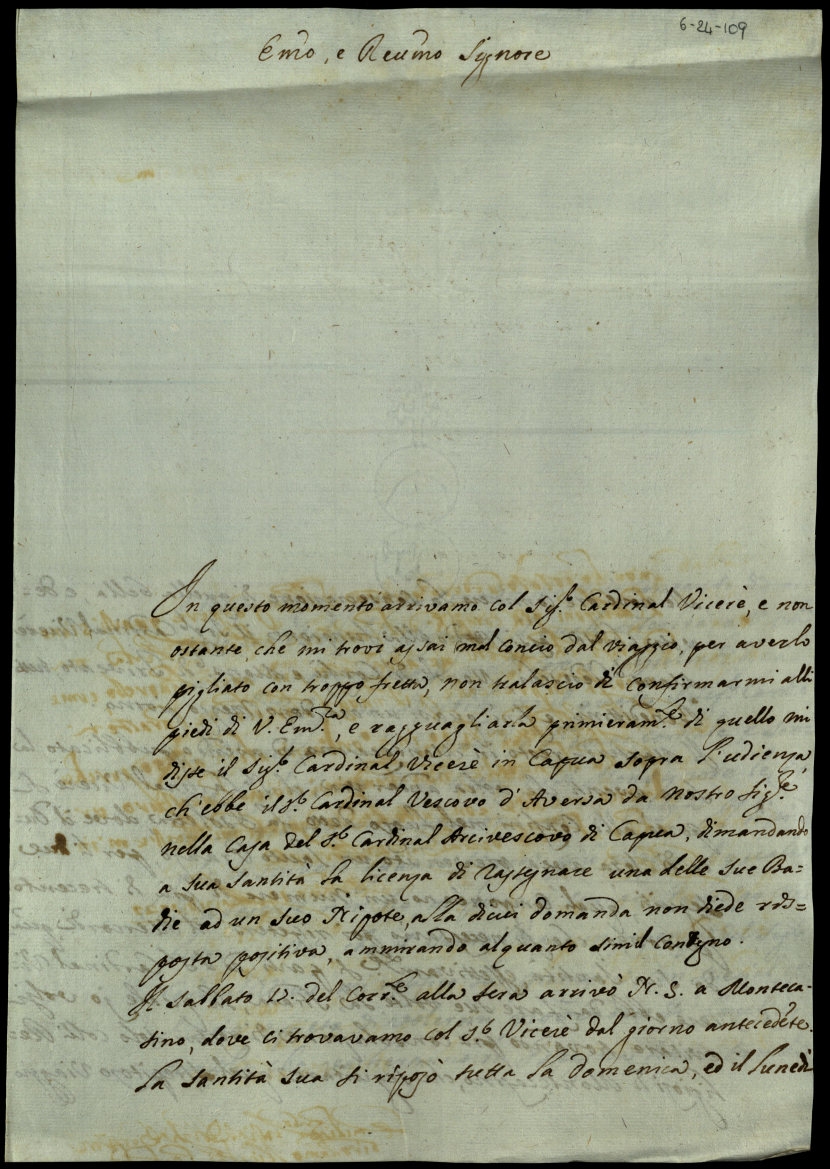 6-24-109
Emo, e Reumo Signore
In questo momento arrivamo col Sig.r Cardinal Vicerè, e non
ostante, che mi trovi assai mal concio dal viaggio, per averlo
pigliato con troppo fretta, non tralascio di confirmarmi alli
piedi di V. Em.za, e ragguagliarla primieram.te di quello mi
disse il Sig.r Cardinal Vicerè in Capua sopra l'udienza,
ch'ebbe il S.r Cardinal Vescovo d'Aversa da Nostro Sig.re
nella Casa del S.r Cardinal Arcivescovo di Capua, dimandando
a sua Santità la licenza di rassegnare una delle sue Ba=
die ad un suo Nipote, alla dicui domanda non diede ris=
posta positiva, ammirando alquanto simil
Il Sabbato 17. del Corr.te alla sera arrivò N. S. a Monteca-
sino, dove ci trovavamo col S.r Vicerè dal giorno antecedẽte.
La Santità sua si riposò tutta la domenica, ed il lunedì